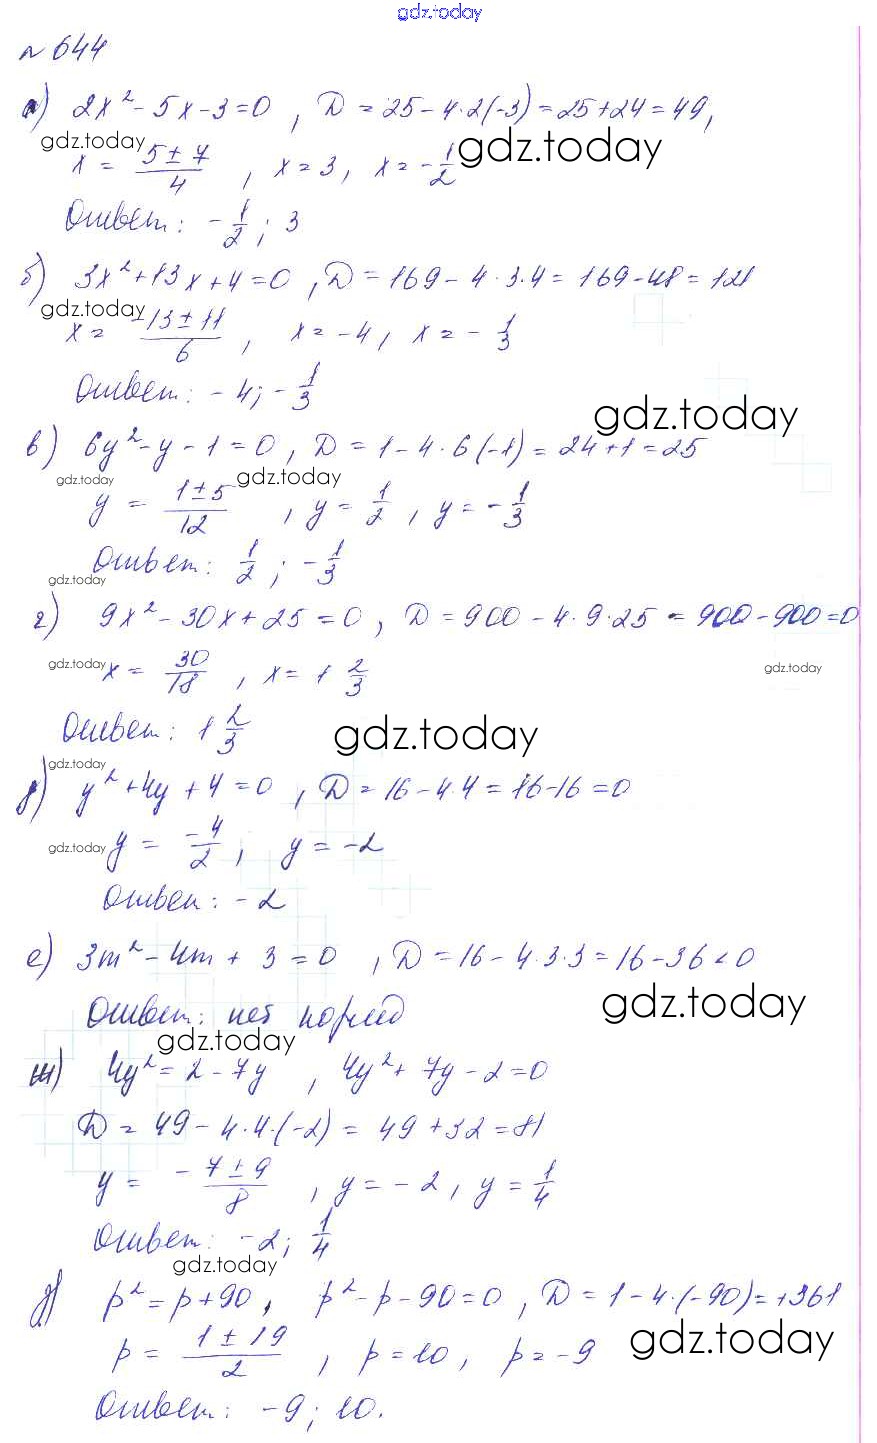 gdz.today
№ 644
а) 2x² - 5x - 3 = 0 , D = 25 - 4·2(-3) = 25 + 24 = 49,
gdz.today gdz.today
x = (5 ± 7)/4 , x = 3, x = -1/2
Ответ: -1/2; 3
б) 3x² + 13x + 4 = 0 , D = 169 - 4·3·4 = 169 - 48 = 121
gdz.today
x = (-13 ± 11)/6 , x = -4, x = -1/3
Ответ: -4; -1/3
gdz.today
в) 6y² - y - 1 = 0 , D = 1 - 4·6(-1) = 24 + 1 = 25
gdz.today gdz.today
y = (1 ± 5)/12 , y = 1/2 , y = -1/3
Ответ: 1/2 ; -1/3
gdz.today
г) 9x² - 30x + 25 = 0 , D = 900 - 4·9·25 = 900 - 900 = 0
gdz.today gdz.today
x = 30/18 , x = 1 2/3
Ответ: 1 2/3
gdz.today
gdz.today
д) y² + 4y + 4 = 0 , D = 16 - 4·4 = 16 - 16 = 0
gdz.today
y = -4/2 , y = -2
Ответ: -2
е) 3m² - 4m + 3 = 0 , D = 16 - 4·3·3 = 16 - 36 < 0
Ответ: нет корней
gdz.today
gdz.today
ж) 4y² = 2 - 7y , 4y² + 7y - 2 = 0
D = 49 - 4·4·(-2) = 49 + 32 = 81
y = (-7 ± 9)/8 , y = -2, y = 1/4
Ответ: -2; 1/4
gdz.today
з) p² = p + 90, p² - p - 90 = 0 , D = 1 - 4·(-90) = +361
gdz.today
p = (1 ± 19)/2 , p = 10, p = -9
Ответ: -9; 10.